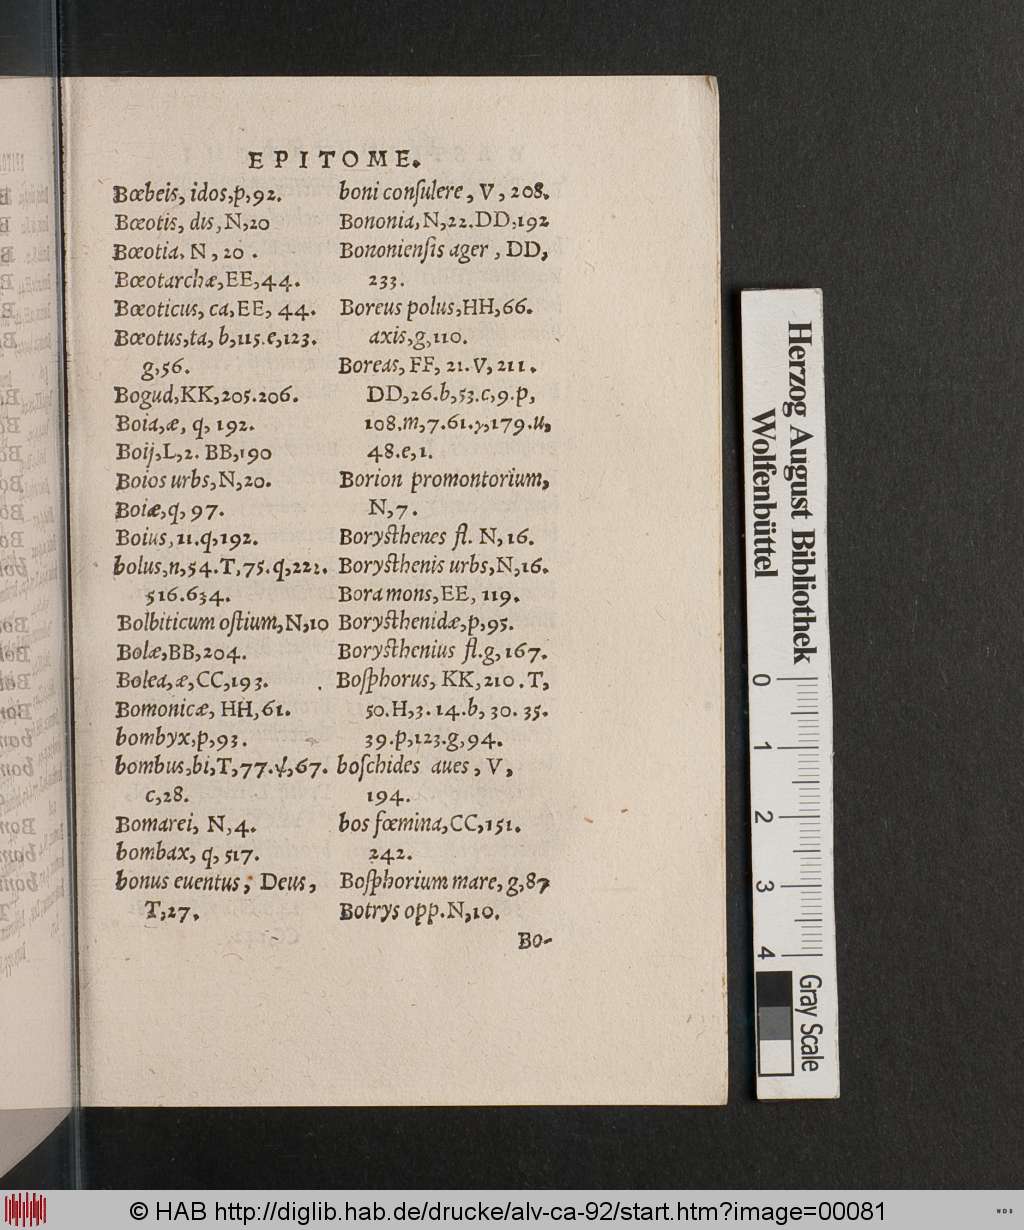 EPITOME.
Bœbeis, idos,p,92.
Bœotis, dis, N,20
Bœotia, N, 20.
Bœotarchæ,EE,44.
Bœoticus, ca,EE, 44.
Bœotus,ta, b,115.e,123.
g,56.
Bogud,KK,205.206.
Boia,æ, q, 192.
Boij,L,2. BB,190
Boios urbs,N,20.
Boiæ,q, 97.
Boius, 11.q,192.
bolus,n,54.T,75.q,222.
516.634.
Bolbiticum oſtium,N,10
Bolæ,BB,204.
Bolea,æ,CC,193.
Bomonicæ, HH,61.
bombyx,p,93.
bombus,bi,T,77.ψ,67.
c,28.
Bomarei, N,4.
bombax, q, 517.
bonus euentus, Deus,
T,27.
boni conſulere, V, 208.
Bononia,N,22.DD,192
Bononienſis ager, DD,
233.
Boreus polus,HH,66.
axis,g,110.
Boreas, FF, 21.V, 211.
DD,26.b,53.c,9.p,
108.m,7.61.γ,179.u,
48.e,1.
Borion promontorium,
N,7.
Boryſthenes fl. N,16.
Boryſthenis urbs,N,16.
Bora mons,EE, 119.
Boryſthenidæ,p,95.
Boryſthenius fl.g,167.
Boſphorus, KK,210.T,
50.H,3.14.b, 30.35.
39.p,123.g,94.
boſchides aues, V,
194.
bos fœmina,CC,151.
242.
Boſphorium mare, g,87
Botrys opp.N,10.
Bo-
Herzog August Bibliothek
Wolfenbüttel
0 1 2 3 4
Gray Scale
© HAB http://diglib.hab.de/drucke/alv-ca-92/start.htm?image=00081